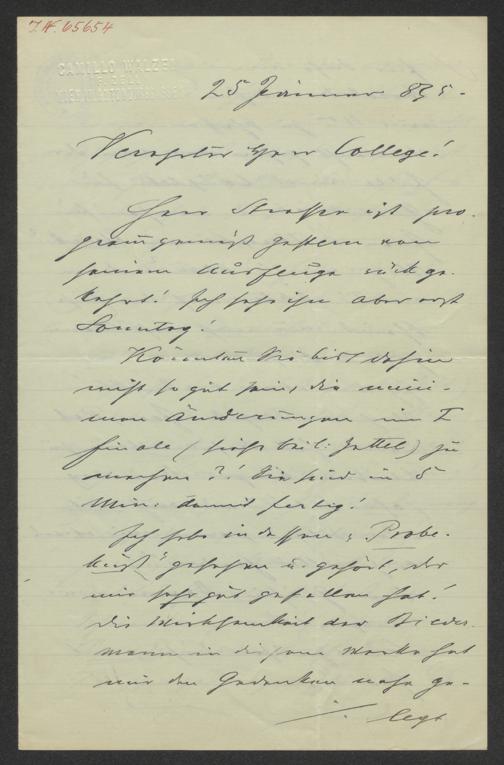 I.N. 65654
CAMILLO WALZEL
WIEN
25 Jänner 895.
Verehrter Herr College!
Herr Strauss ist pro-
gram̄gemäß gestern von
seinem Ausfluge rückge-
kehrt! Ich sehe ihn aber erst
Sonntag!
Könnten Sie bis dahin
nicht so gut sein, die mini-
men Änderungen im I
finale (siehe beil. Zettel) zu
machen?! Sie sind in 5
Min. damit fertig!
Ich habe indessen „Probe-
kuß" gesehen u. gehört, der
mir sehr gut gefallen hat!
Die Wirksamkeit der Bieder-
mann in diesem Werke hat
mir den Gedanken nahe ge-
legt